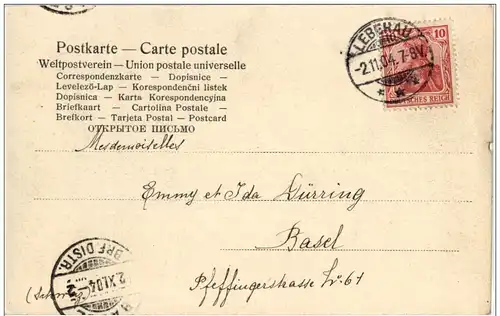 Postkarte — Carte postale
Weltpostverein — Union postale universelle
Correspondenzkarte – Dopisnice
Levelező-Lap – Korespondenční listek
Dopisnica – Karta Korespondencyjna
Briefkaart – Cartolina Postale
Brefkort – Tarjeta Postal – Postcard
ОТКРЫТОЕ ПИСЬМО
LEBERAU
-2.11.04.7-8V.
10
DEUTSCHES REICH
Mesdemoiselles
Emmy et Ida Dürring
Basel
Pfeffingerstrasse No 61
BRF. DISTR.
2.XI.04